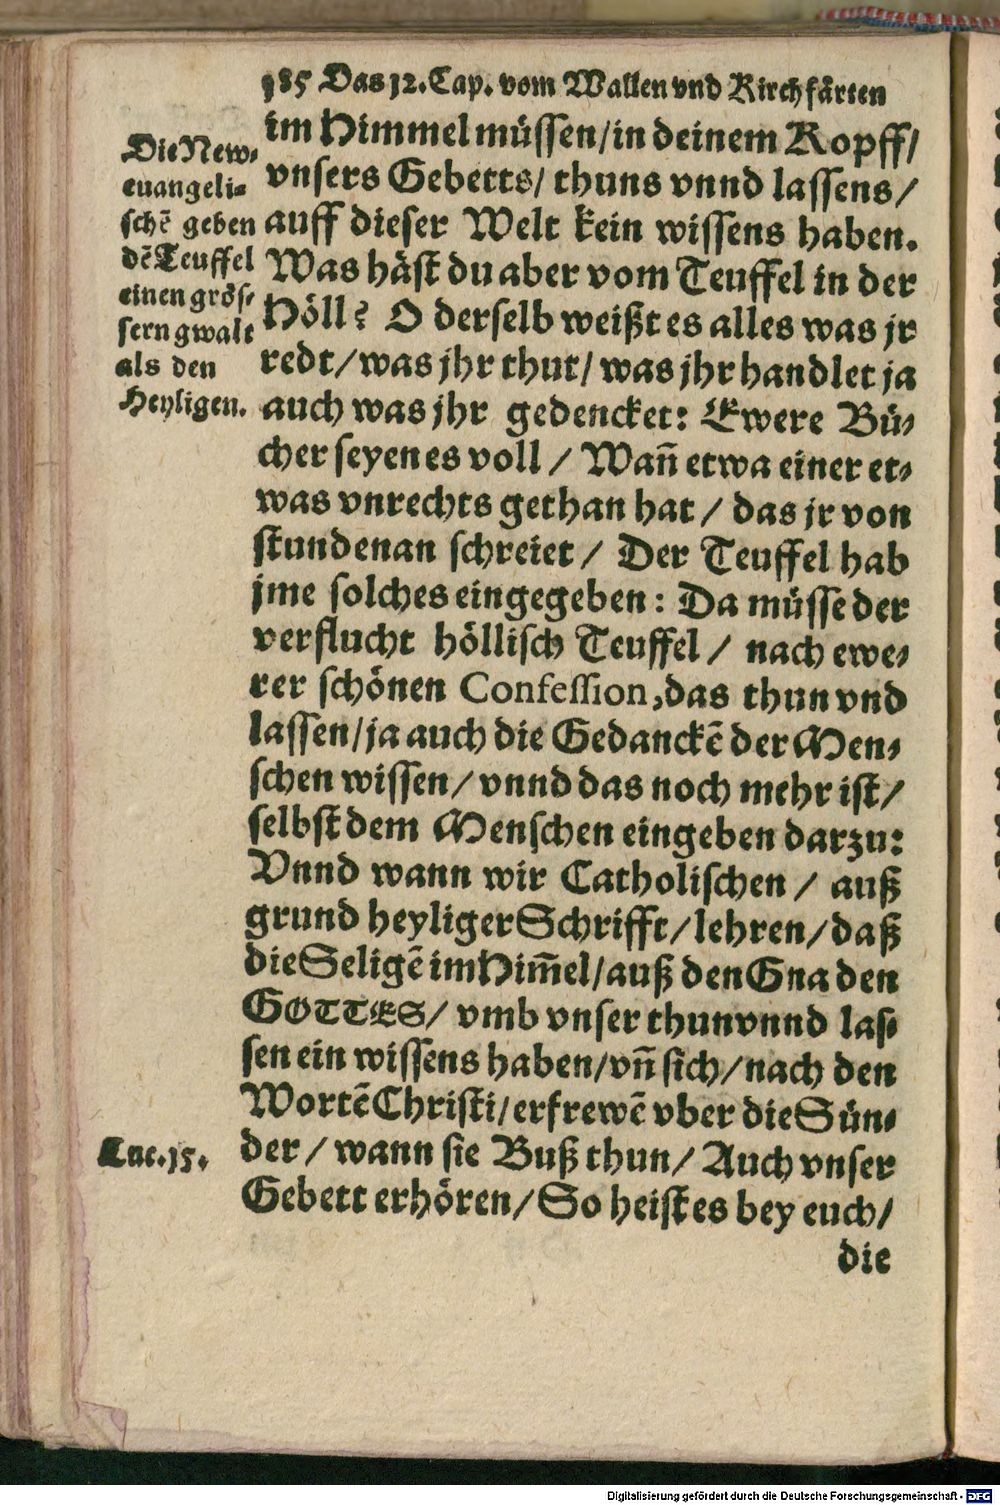 185 Das 12. Cap. vom Wallen vnd Kirchfärten
Die New-
euangeli-
schẽ geben
dẽ Teuffel
einen grös-
sern gwalt
als den
Heyligen.
im Himmel müssen/ in deinem Kopff/
vnsers Gebetts/ thuns vnnd lassens/
auff dieser Welt kein wissens haben.
Was häst du aber vom Teuffel in der
Höll? O derselb weißt es alles was jr
redt/ was jhr thut/ was jhr handlet ja
auch was jhr gedencket: Ewere Bü-
cher seyen es voll / Wañ etwa einer et-
was vnrechts gethan hat / das jr von
stunden an schreiet / Der Teuffel hab
jme solches eingegeben: Da müsse der
verflucht höllisch Teuffel / nach ewe-
rer schönen Confession, das thun vnd
lassen/ ja auch die Gedanckẽ der Men-
schen wissen/ vnnd das noch mehr ist/
selbst dem Menschen eingeben darzu:
Vnnd wann wir Catholischen / auß
grund heyliger Schrifft/ lehren/ daß
die Seligẽ im Him̃el/ auß den Gnaden
GOTTES/ vmb vnser thun vnnd las-
sen ein wissens haben/ vñ sich/ nach den
Wortẽ Christi/ erfrewẽ vber die Sün-
der / wann sie Buß thun/ Auch vnser
Luc. 15.
Gebett erhören/ So heist es bey euch/
die
Digitalisierung gefördert durch die Deutsche Forschungsgemeinschaft - DFG